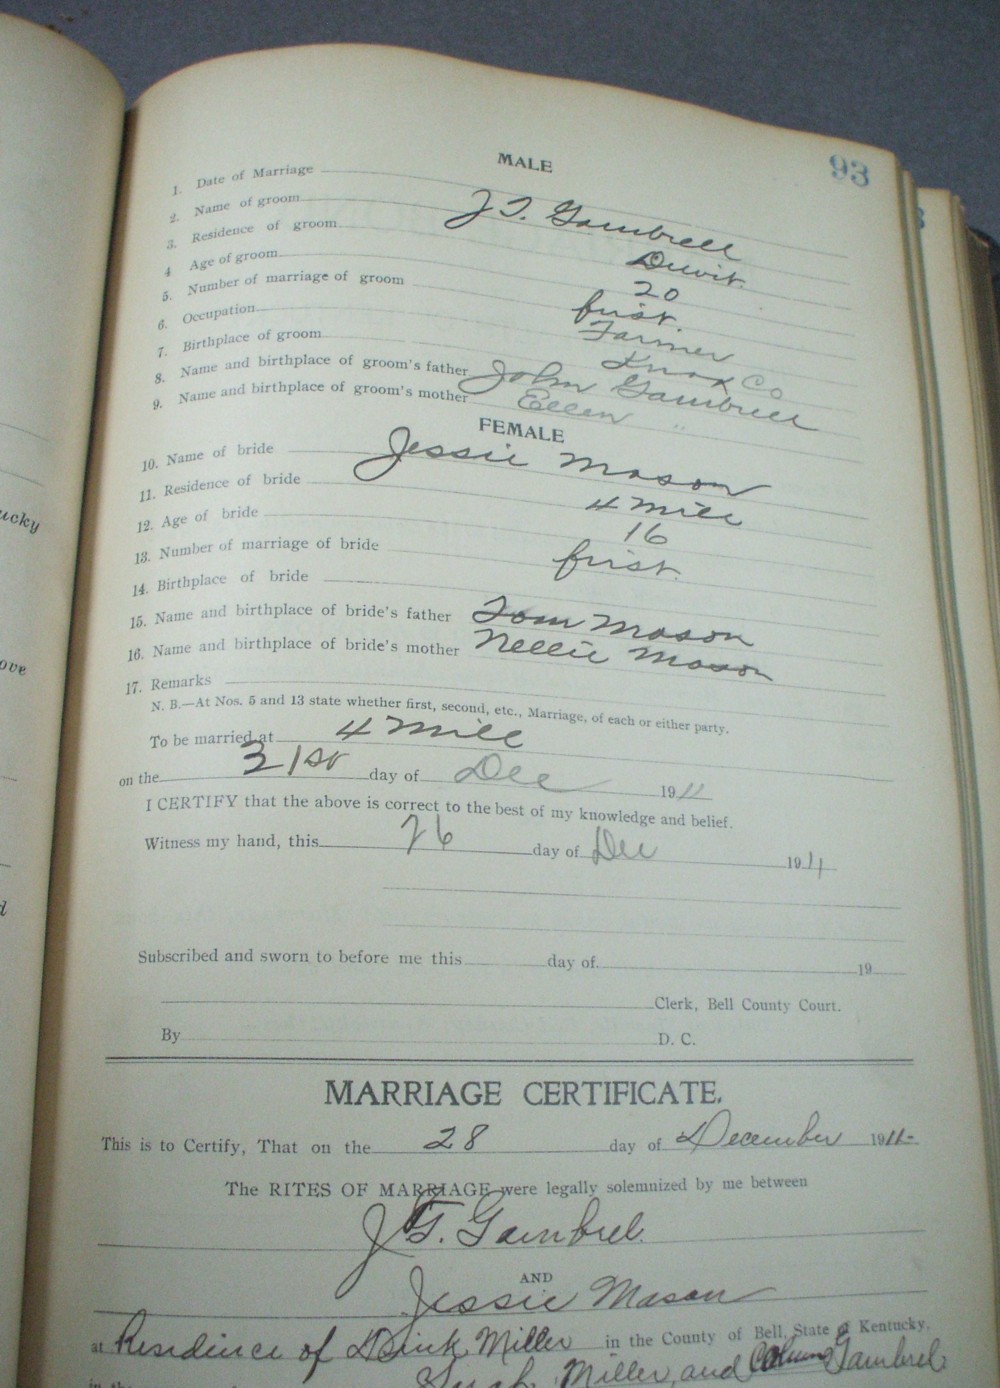 93
MALE
1. Date of Marriage
2. Name of groom J T. Gambrell
3. Residence of groom Dewit.
4 Age of groom 20
5. Number of marriage of groom first.
6. Occupation Farmer
7. Birthplace of groom Knox Co
8. Name and birthplace of groom's father John Gambrell
9. Name and birthplace of groom's mother Ellen "
FEMALE
10. Name of bride Jessie Mason
11. Residence of bride 4 Mile
12. Age of bride 16
13. Number of marriage of bride first.
14. Birthplace of bride
15. Name and birthplace of bride's father Tom Mason
16. Name and birthplace of bride's mother Nellie Mason
17. Remarks
N. B.—At Nos. 5 and 13 state whether first, second, etc., Marriage, of each or either party.
To be married at 4 Mile
on the 31st day of Dec 1911
I CERTIFY that the above is correct to the best of my knowledge and belief.
Witness my hand, this 26 day of Dec 1911
Subscribed and sworn to before me this day of. 19
Clerk, Bell County Court.
By D. C.
MARRIAGE CERTIFICATE.
This is to Certify, That on the 28 day of December 1911-
The RITES OF MARRIAGE were legally solemnized by me between
J T. Gambrel.
AND
Jessie Mason
at Residince of Dink Miller in the County of Bell, State of Kentucky,
in the Miller, and Gambrel
ucky
ove
d